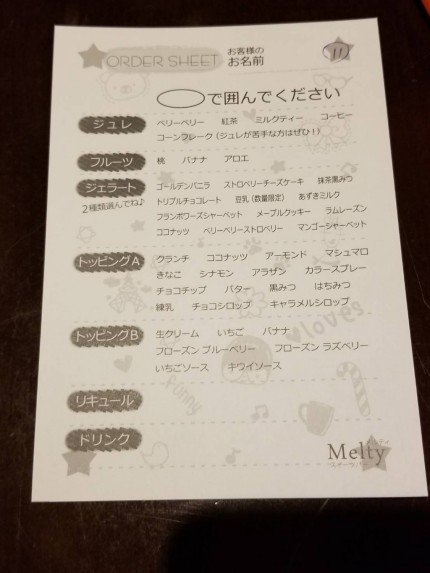 ORDER SHEET お客様の お名前 11
で囲んでください
ジュレ ベリーベリー 紅茶 ミルクティー コーヒー
コーンフレーク (ジュレが苦手な方はぜひ!)
フルーツ 桃 バナナ アロエ
ジェラート ゴールデンバニラ ストロベリーチーズケーキ 抹茶黒みつ
2種類選んでね♪ トリプルチョコレート 豆乳(数量限定) あずきミルク
フランボワーズシャーベット メープルクッキー ラムレーズン
ココナッツ ベリーベリーストロベリー マンゴーシャーベット
トッピングA クランチ ココナッツ アーモンド マシュマロ
きなこ シナモン アラザン カラースプレー
チョコチップ バター 黒みつ はちみつ
練乳 チョコシロップ キャラメルシロップ
トッピングB 生クリーム いちご バナナ
フローズン ブルーベリー フローズン ラズベリー
いちごソース キウイソース
loves
Funny
リキュール
ドリンク
Melty